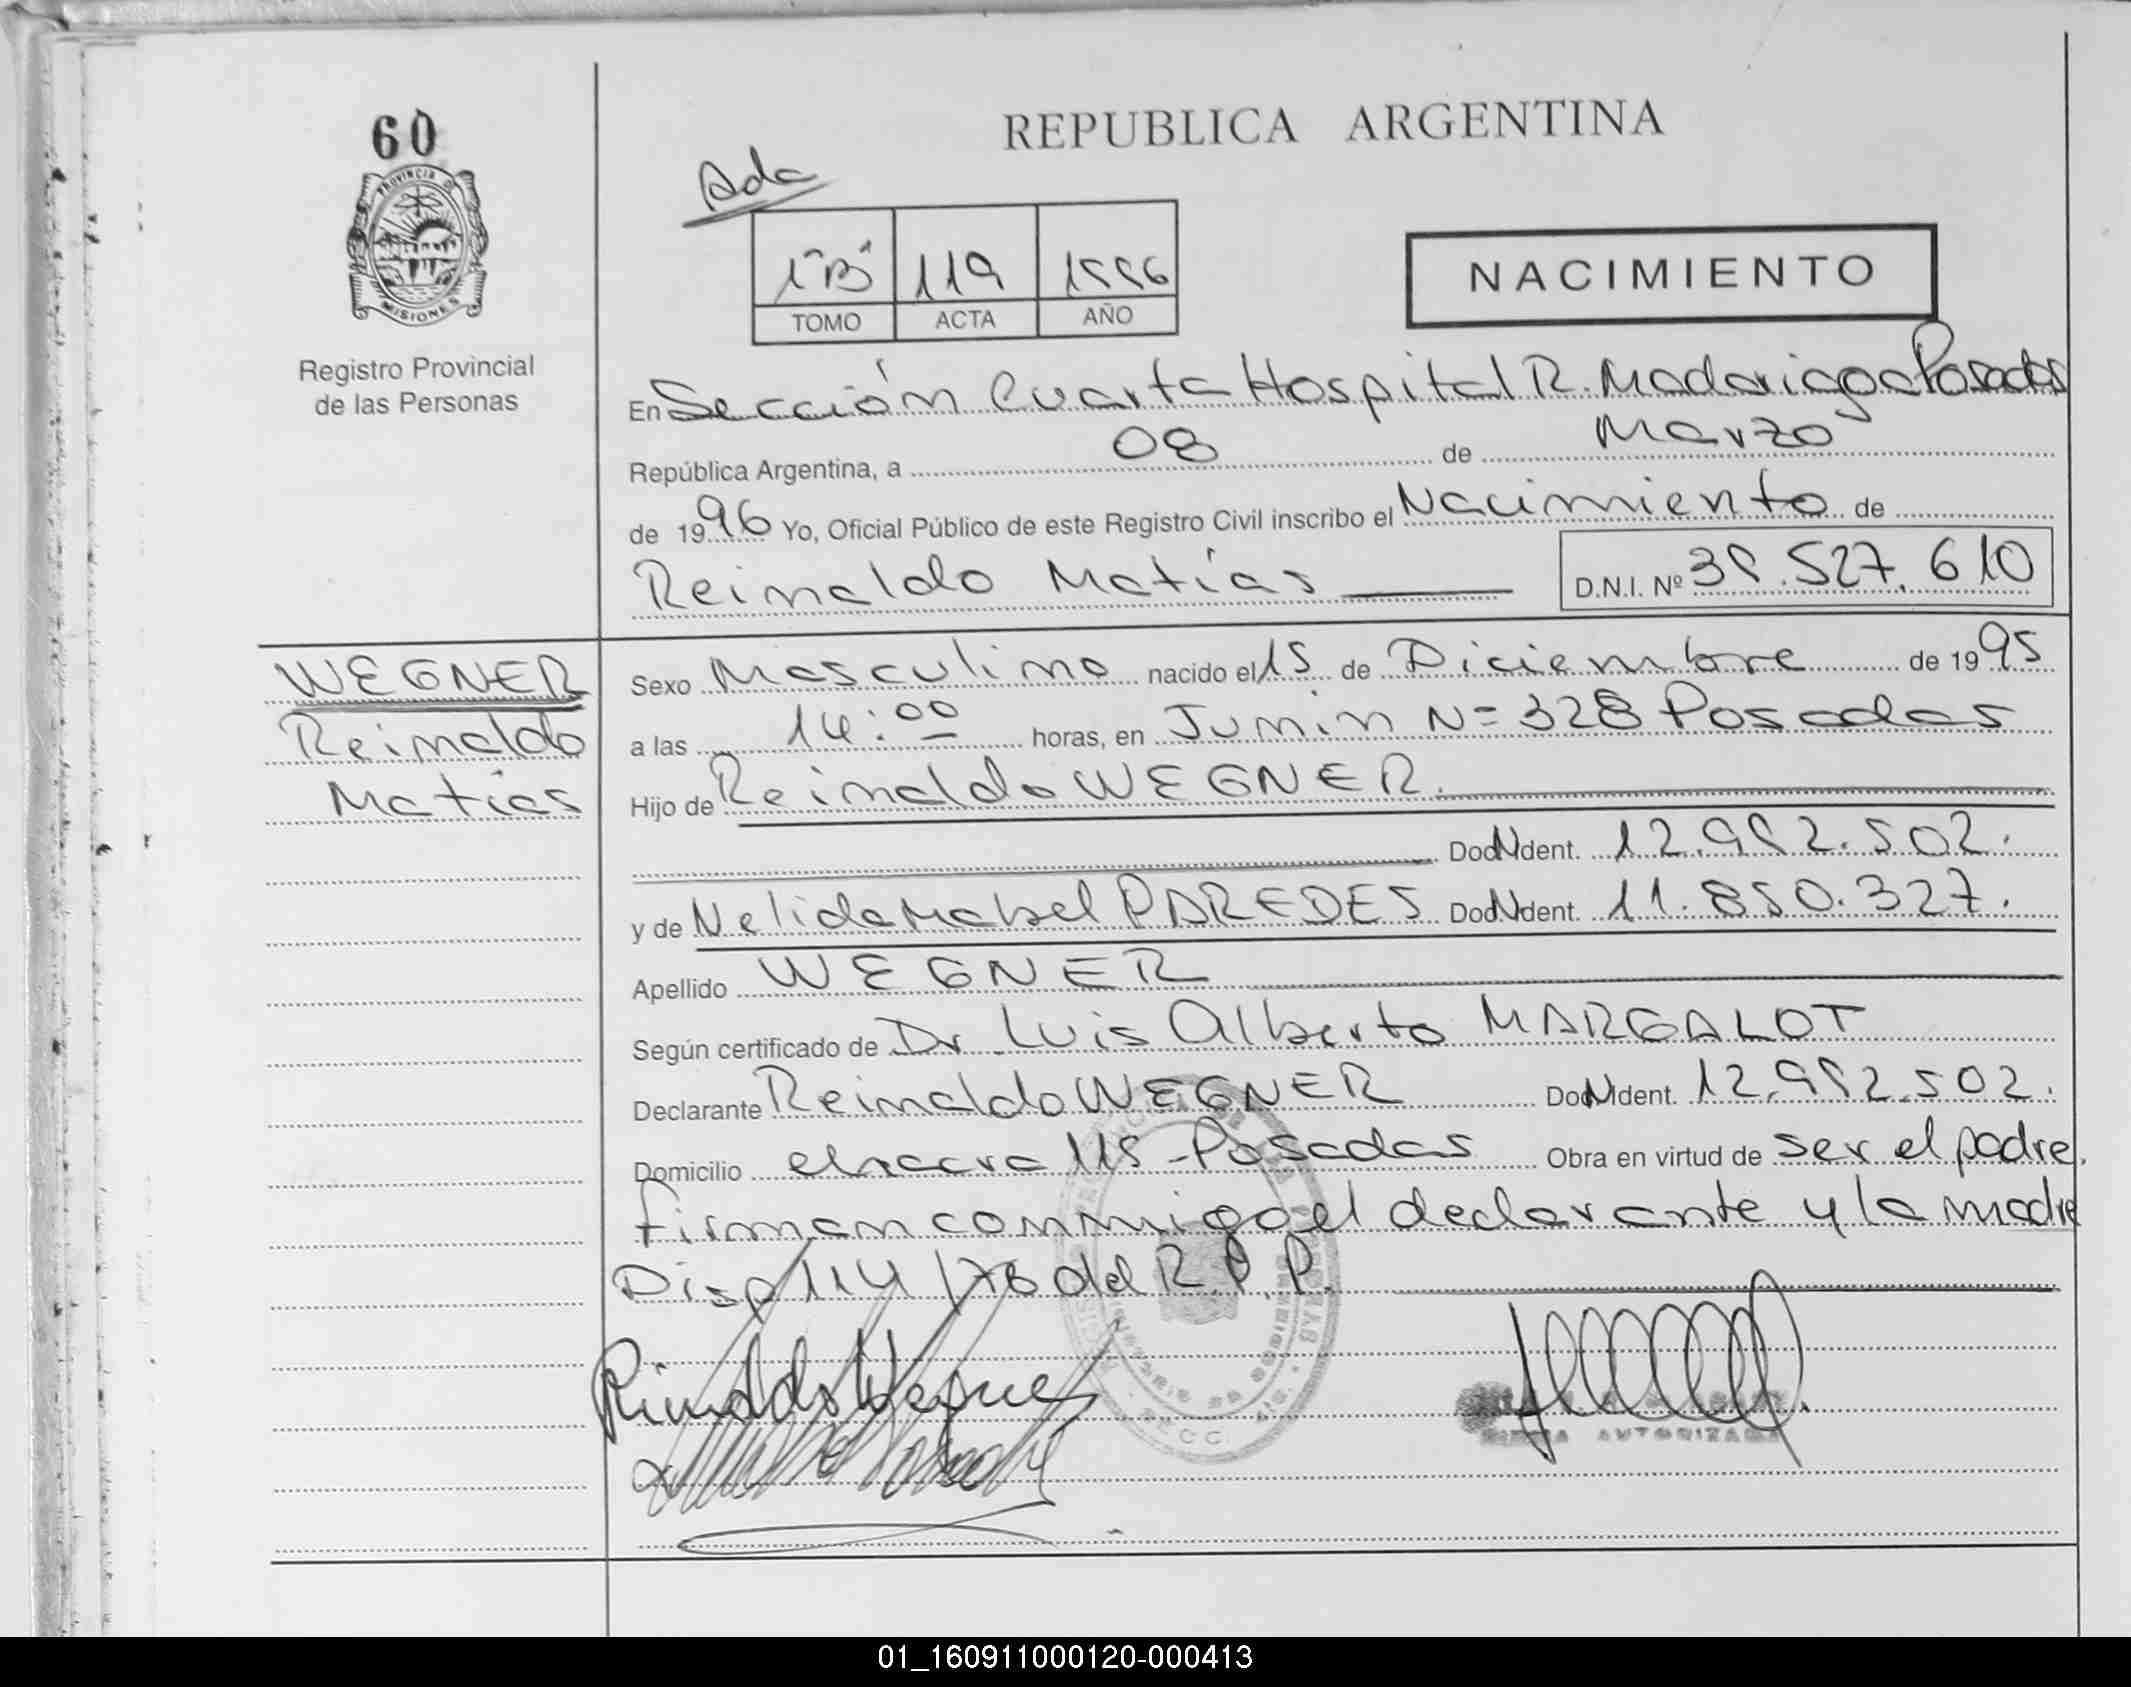 60
PROVINCIA DE
MISIONES
Registro Provincial
de las Personas
REPUBLICA ARGENTINA
Ada
1"B" 119 1996
TOMO ACTA AÑO
NACIMIENTO
En Sección Cuarta Hospital R. Madariaga Posadas
República Argentina, a 08 de Marzo
de 1996 Yo, Oficial Público de este Registro Civil inscribo el Nacimiento de
Reinaldo Matías D.N.I. Nº 39.527.610
WEGNER
Reinaldo
Matías
Sexo Masculino nacido el 15 de Diciembre de 1995
a las 14:00 horas, en Junin N= 328 Posadas
Hijo de Reinaldo WEGNER.
Doc N Ident. 12.992.502.
y de Nelida Mabel PAREDES Doc N Ident. 11.850.327.
Apellido WEGNER
Según certificado de Dr Luis Alberto MARGALOT
Declarante Reinaldo WEGNER Doc N Ident. 12.992.502.
Domicilio chacra 115 - Posadas Obra en virtud de ser el padre.
firman conmigo el declarante y la madre
Disp 114/76 del R.P.P.
AUTORIZADA
01_160911000120-000413